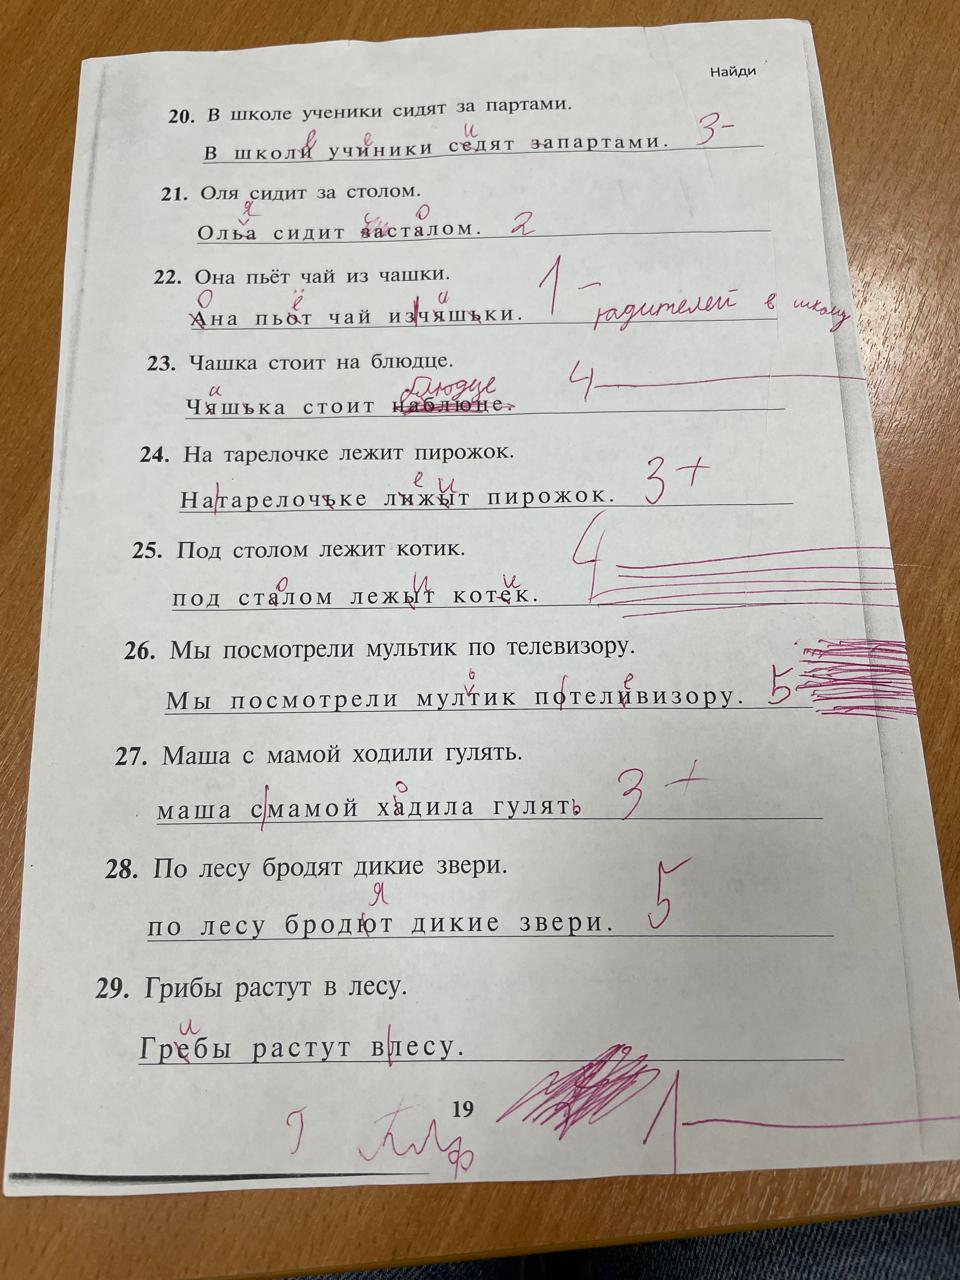 Найди
20. В школе ученики сидят за партами.
е е и
В школи учиники седят запартами. 3-
21. Оля сидит за столом.
я о
Ольа сидит засталом. 2
22. Она пьёт чай из чашки.
О ё а
Ана пьот чай изчяшьки. 1 - радителей в школу
23. Чашка стоит на блюдце.
а блюдце
Чяшька стоит наблюце. 4
24. На тарелочке лежит пирожок.
е и
Натарелочьке лижыт пирожок. 3+
25. Под столом лежит котик.
о и и
под сталом лежыт котек. 4
26. Мы посмотрели мультик по телевизору.
ь е
Мы посмотрели мултик потеливизору. 5
27. Маша с мамой ходили гулять.
о
маша смамой хадила гулять 3+
28. По лесу бродят дикие звери.
я
по лесу бродют дикие звери. 5
29. Грибы растут в лесу.
и
Гребы растут влесу.
19
1